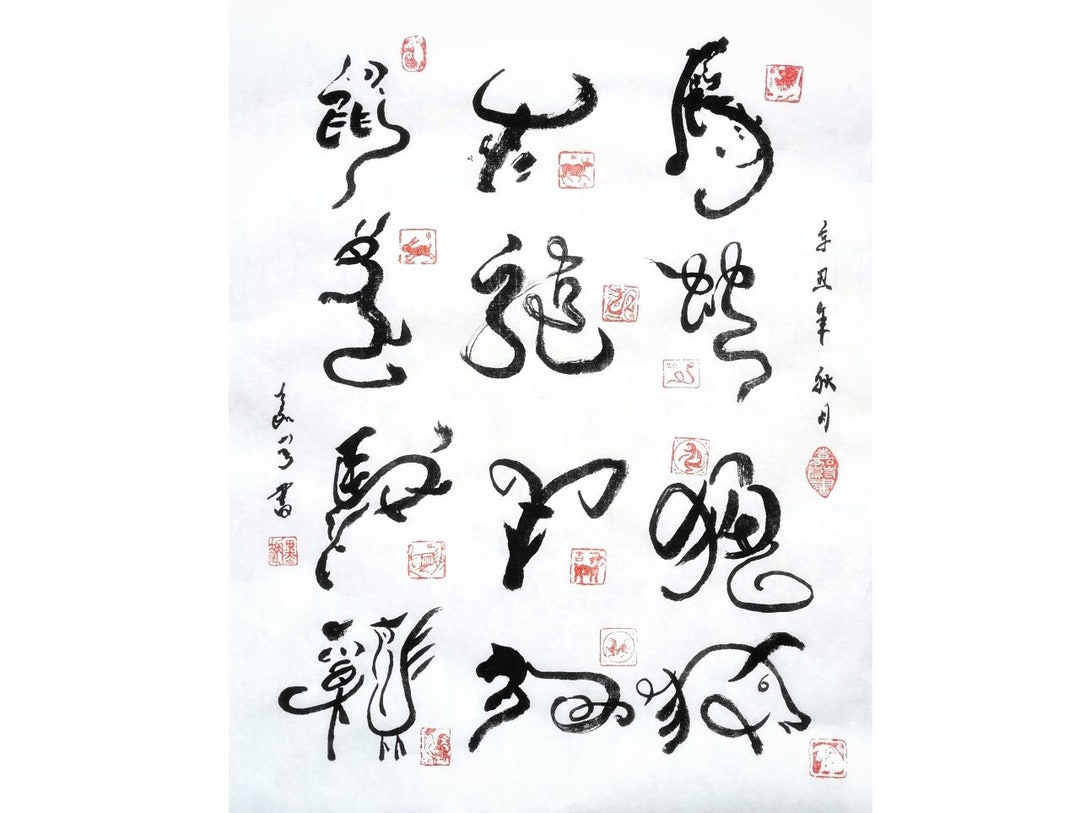 鼠 牛 虎
兔 龍 蛇
馬 羊 猴
雞 狗 猪
辛丑年秋月
書